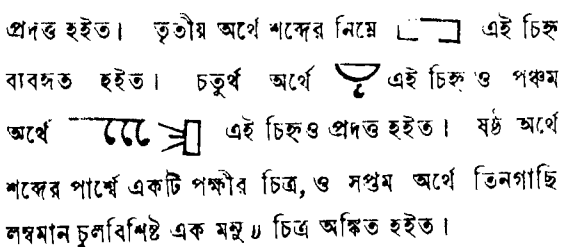 প্রদত্ত হইত। তৃতীয় অর্থে শব্দের নিম্নে এই চিহ্ন
ব্যবহৃত হইত। চতুর্থ অর্থে এই চিহ্ন ও পঞ্চম
অর্থে এই চিহ্নও প্রদত্ত হইত। ষষ্ঠ অর্থে
শব্দের পার্শ্বে একটি পক্ষীর চিত্র, ও সপ্তম অর্থে তিনগাছি
লম্বমান চুলবিশিষ্ট এক চিত্র অঙ্কিত হইত।